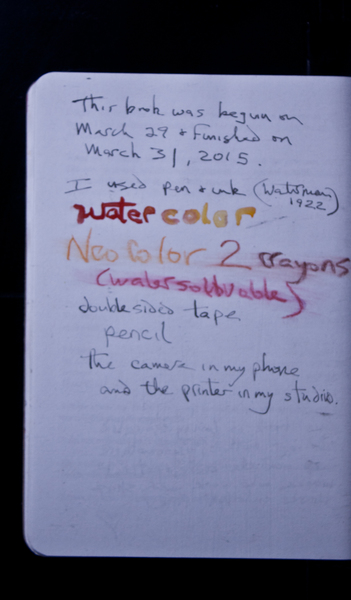 This book was begun on
March 29 + Finished on
March 31, 2015.
I used pen + ink (Waterman
1922)
watercolor
NeoColor 2 crayons
(watersolvuable)
doublesided tape
pencil
the camera in my phone
and the printer in my studio.